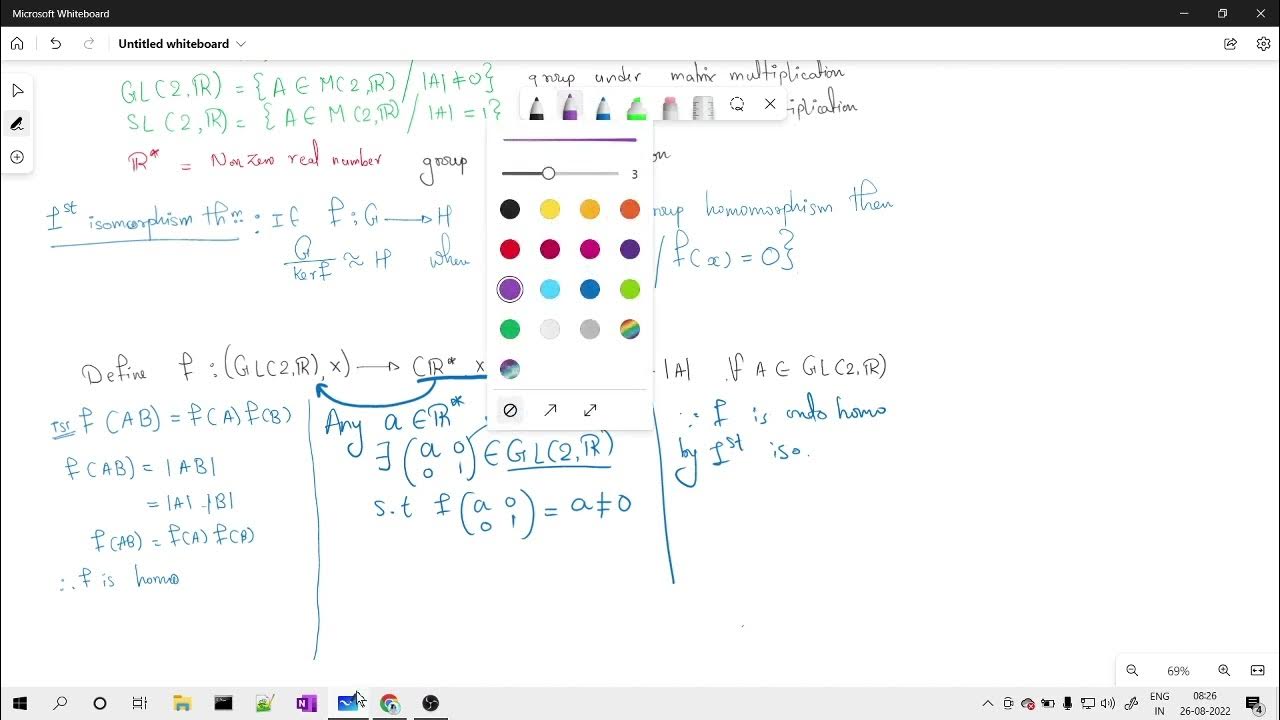 Microsoft Whiteboard
Untitled whiteboard
GL(2,ℝ) = {A ∈ M(2,ℝ) / |A| ≠ 0} group under matrix multiplication
SL(2,ℝ) = {A ∈ M(2,ℝ) / |A| = 1} iplication
ℝ* = Non zero real number group on
3
Ist isomorphism thm : If f : G → H oup homomorphism then
G/kerf ≈ H when / f(x) = 0}
Define f : (GL(2,ℝ), x) → (ℝ*, x |A| if A ∈ GL(2,ℝ)
TST f(AB) = f(A) f(B)
f(AB) = |AB|
= |A| . |B|
f(AB) = f(A) f(B)
∴ f is homo
Any a ∈ ℝ*
∃ (a 0
0 1) ∈ GL(2,ℝ)
s.t f (a 0
0 1) = a ≠ 0
∵ f is onto homo
by Ist iso.
69%
ENG
IN
08:26
26-08-2022
4